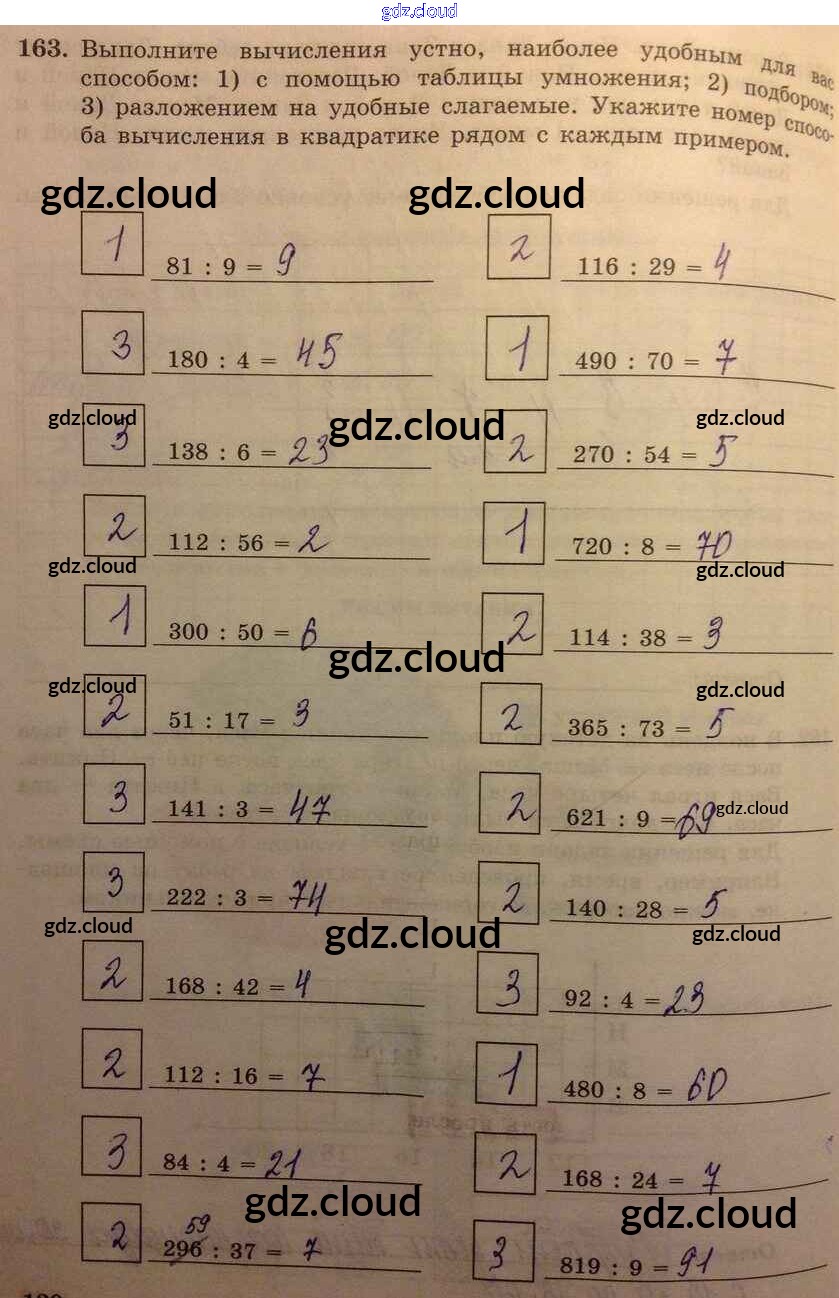 gdz.cloud
163. Выполните вычисления устно, наиболее удобным для вас
способом: 1) с помощью таблицы умножения; 2) подбором;
3) разложением на удобные слагаемые. Укажите номер спосо-
ба вычисления в квадратике рядом с каждым примером.
gdz.cloud gdz.cloud
1 81 : 9 = 9 2 116 : 29 = 4
3 180 : 4 = 45 1 490 : 70 = 7
gdz.cloud gdz.cloud gdz.cloud
3 138 : 6 = 23 2 270 : 54 = 5
2 112 : 56 = 2 1 720 : 8 = 70
gdz.cloud gdz.cloud
1 300 : 50 = 6 2 114 : 38 = 3
gdz.cloud
gdz.cloud gdz.cloud
2 51 : 17 = 3 2 365 : 73 = 5
3 141 : 3 = 47 2 621 : 9 = 69 gdz.cloud
3 222 : 3 = 74 2 140 : 28 = 5
gdz.cloud gdz.cloud gdz.cloud
2 168 : 42 = 4 3 92 : 4 = 23
2 112 : 16 = 7 1 480 : 8 = 60
3 84 : 4 = 21 2 168 : 24 = 7
gdz.cloud gdz.cloud
59
2 296 : 37 = 7 3 819 : 9 = 91